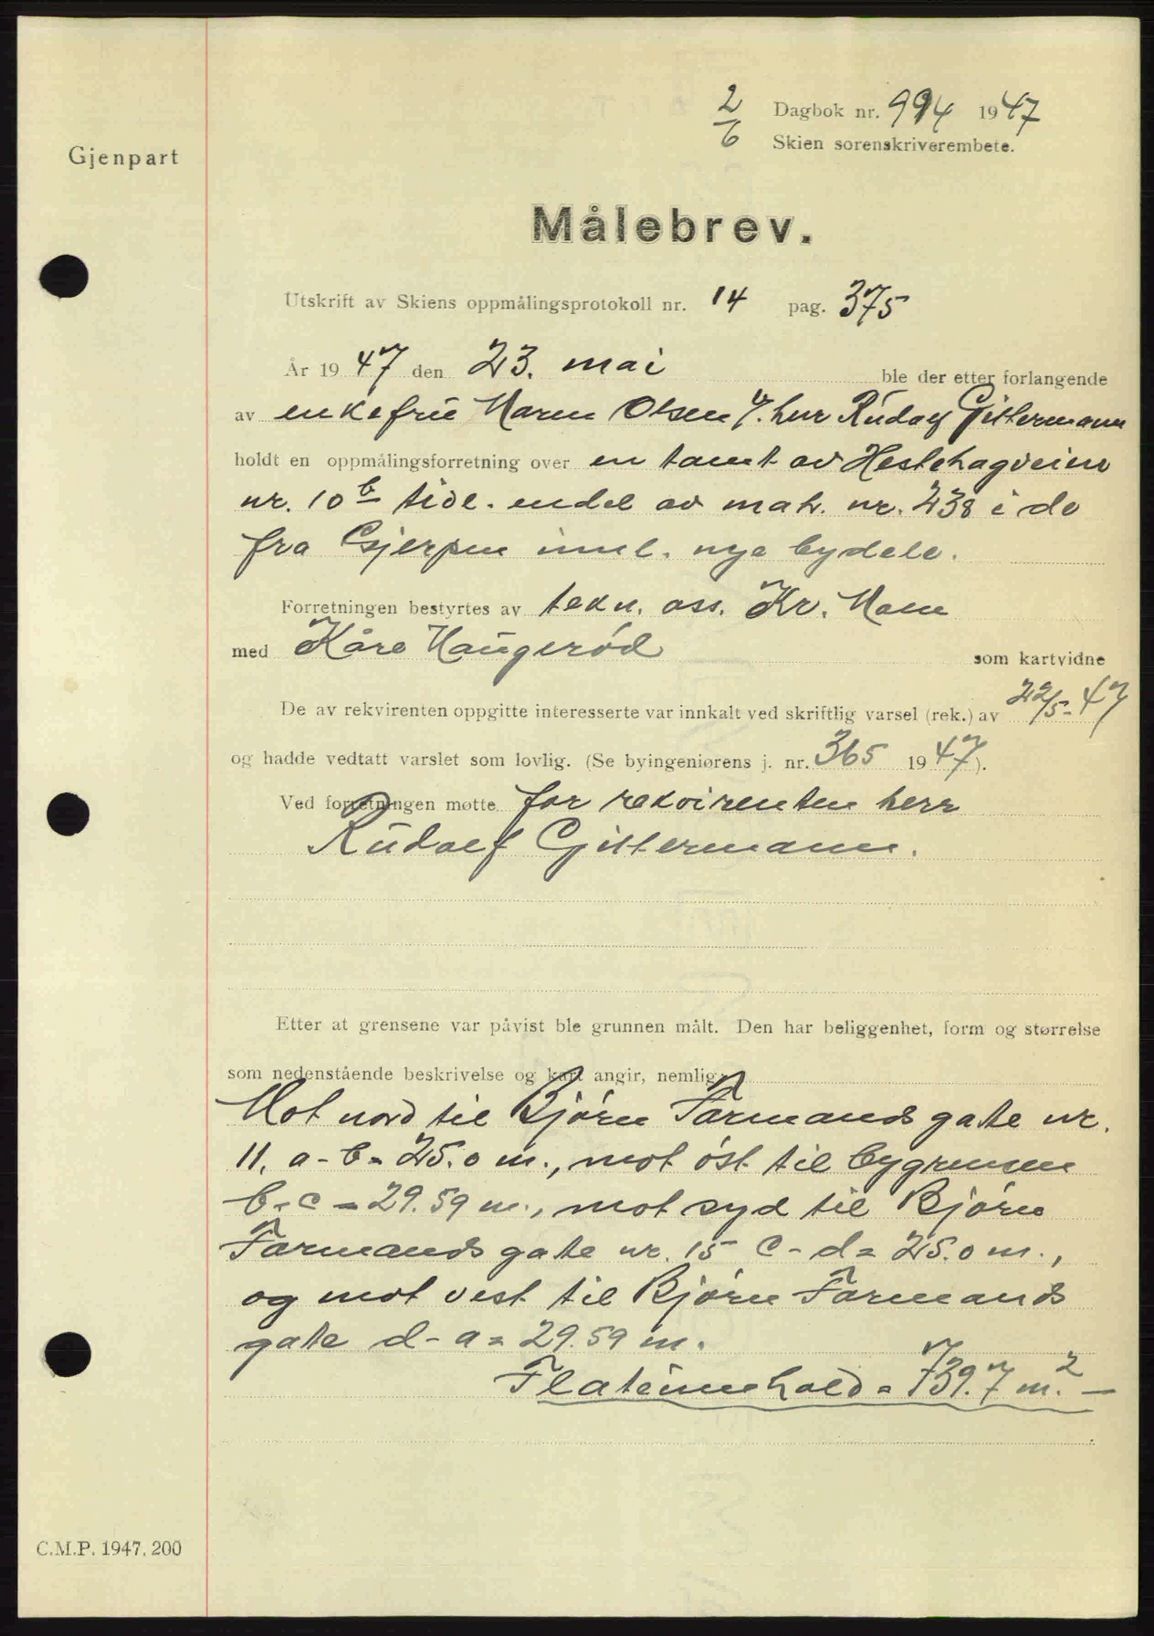 2/6 Dagbok nr. 994 1947
Skien sorenskriverembete.
Gjenpart
Målebrev.
Utskrift av Skiens oppmålingsprotokoll nr. 14 pag. 375
År 1947 den 23. mai ble der etter forlangende
av enkefru Maren Olsen v. herr Rudolf Gittermann
holdt en oppmålingsforretning over en tomt av Hestehagveien
nr. 10 b tidl. endel av matr. nr. 238 i de
fra Gjerpen innl. nye bydele.
Forretningen bestyrtes av tekn. ass. Kr. Moen
med Kåre Haugerød som kartvidne
De av rekvirenten oppgitte interesserte var innkalt ved skriftlig varsel (rek.) av 22/5-47
og hadde vedtatt varslet som lovlig. (Se byingeniørens j. nr. 365 1947).
Ved forretningen møtte for rekvirenten herr
Rudolf Gittermann.
Etter at grensene var påvist ble grunnen målt. Den har beliggenhet, form og størrelse
som nedenstående beskrivelse og kart angir, nemlig:
Mot nord til Bjørn Farmands gate nr.
11. a-b = 25.0 m., mot øst til bygrensen
b-c = 29.59 m., mot syd til Bjørn
Farmands gate nr. 15 c-d = 25.0 m.,
og mot vest til Bjørn Farmands
gate d-a = 29.59 m.
Flateinnhold = 739.7 m.² —
C.M.P. 1947. 200